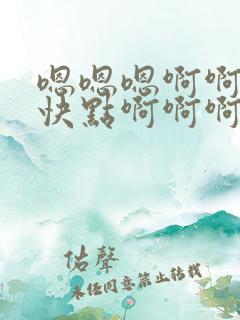 嗯嗯嗯啊啊
快點啊啊啊
佑聲
未经同意禁止转载